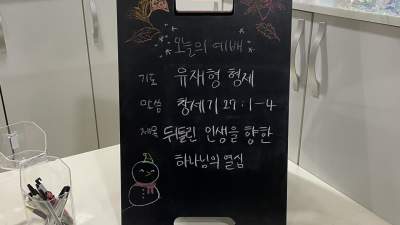 오늘의 예배
기도 유재형 형제
말씀 창세기 27:1-4
제목 뒤틀린 인생을 향한
하나님의 열심